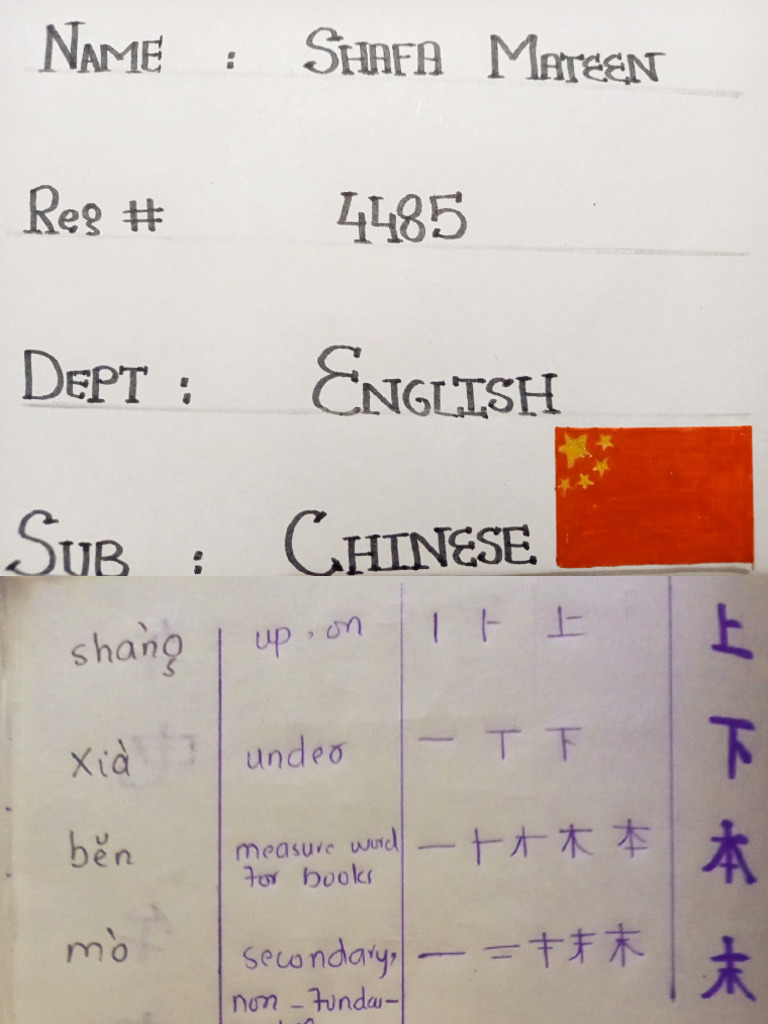 NAME : SHAFA MATEEN
Reg # 4485
DEPT : ENGLISH
SUB : CHINESE
shàng up, on 丨 ⺊ 上 上
xià under 一 丅 下 下
běn measure word for books 一 十 才 木 本 本
mò secondary, non-funda- 一 二 キ 末 末